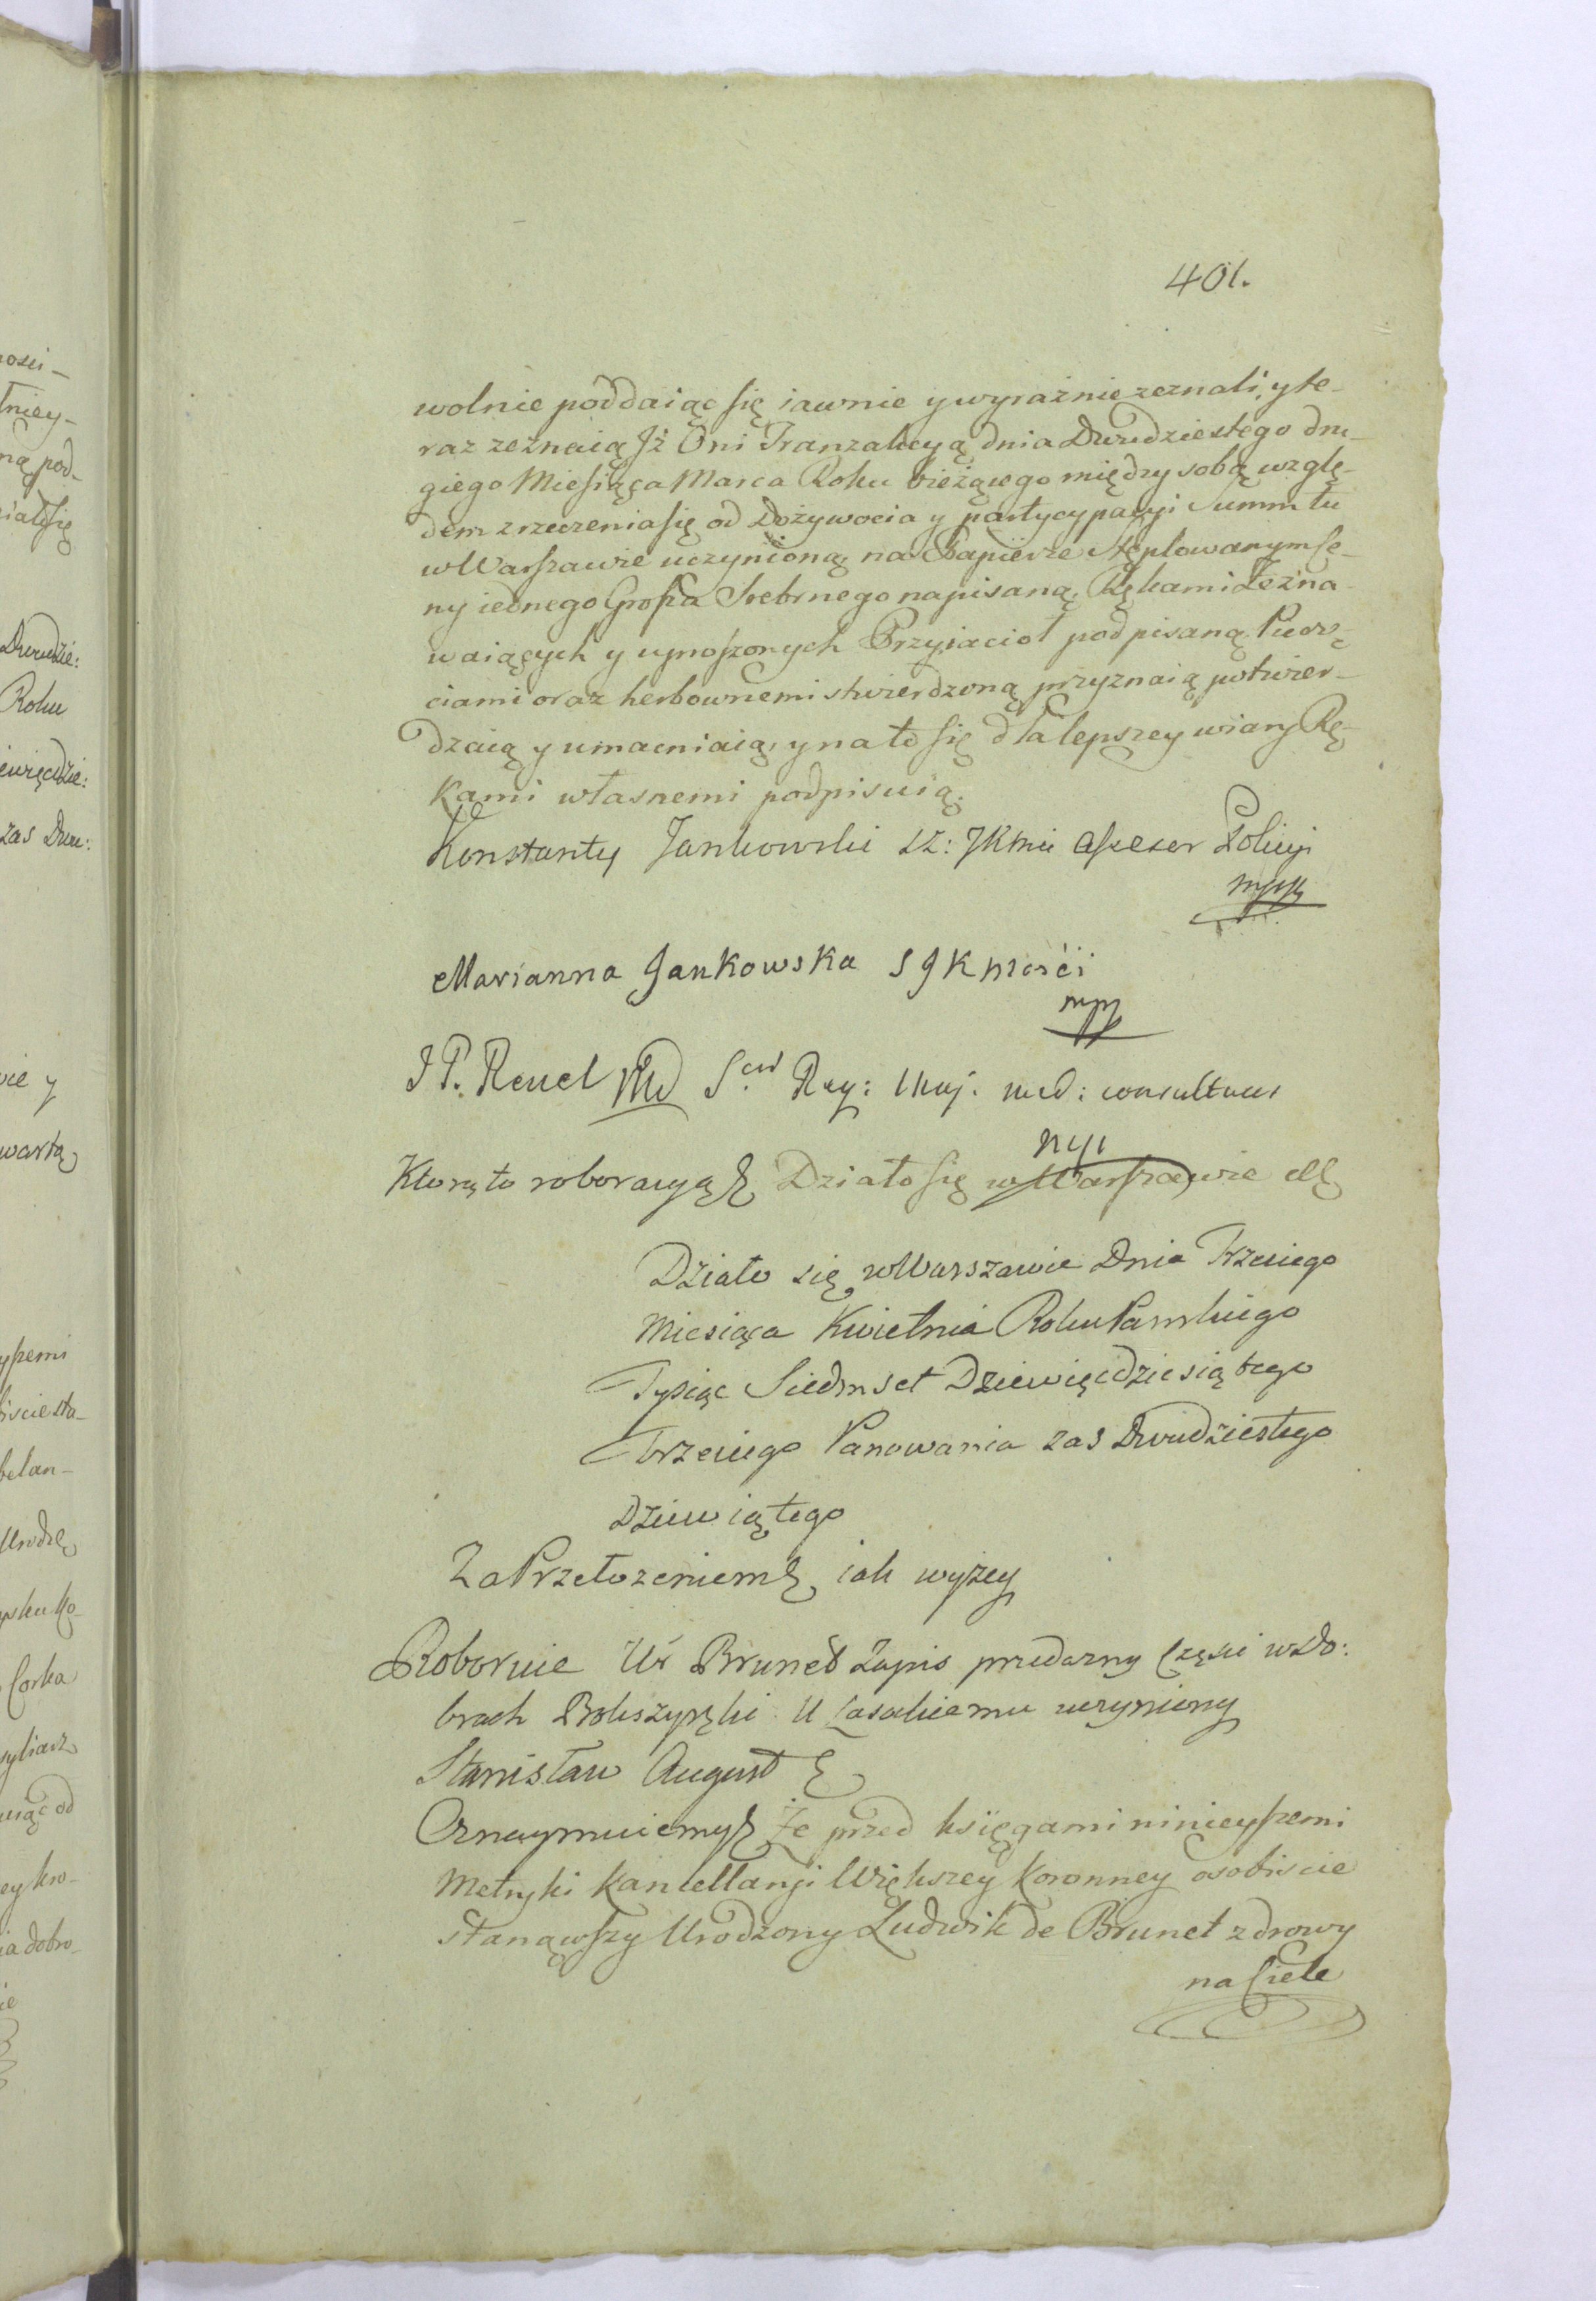 401.
wolnie poddaiąc się iawnie y wyraźnie zeznali, y te-
raz zeznaią Jż Oni Tranzakcyą dnia Dwudziestego dru-
giego Miesiąca Marca Roku bieżącego między sobą wzglę-
dem zrzeczenia się od Dożywocia y partycypacyi Summ tu
w Warszawie uczynioną na Papierze Stęplowanym Ce-
ny iednego Grosza Srebrnego napisaną, Rękami Zezna-
waiących y uproszonych Przyiacioł podpisaną Pieczę-
ciami oraz herbownemi stwierdzoną przyznaią potwier-
dzaią y umacniaią, y na to się dla lepszey wiary Rę-
kami własnemi podpisuią.
Konstanty Jankowski SZ: JKmci Assesor Policyi
mpp
Marianna Jankowska S J K Mości
mpp
J P. Reuel MD S Reg: Maj. med: consultaus
mp
Ktorą to roboracyą & Działo się w Warszawie &
Działo się w Warszawie Dnia Trzeciego
Miesiąca Kwietnia Roku Pamskiego
Tysiąc Siedmset Dziewięcdziesiątego
Trzeciego Panowania zas Dwudziestego
Dziewiątego
Za Przełozeniem & iak wyżey
Roboruie Ur Brunet Zapis przedazny Części w Do:
brach U uczyniony
Stanisław August &
Oznaymuiemy & Że przed księgami ninieyszemi
Metryki Kancellaryi Większey Koronney osobiscie
stanąwszy Urodzony Ludwik de Brunet zdrowy
na Ciele
Dwudzie:
Roku
zas Dwu: